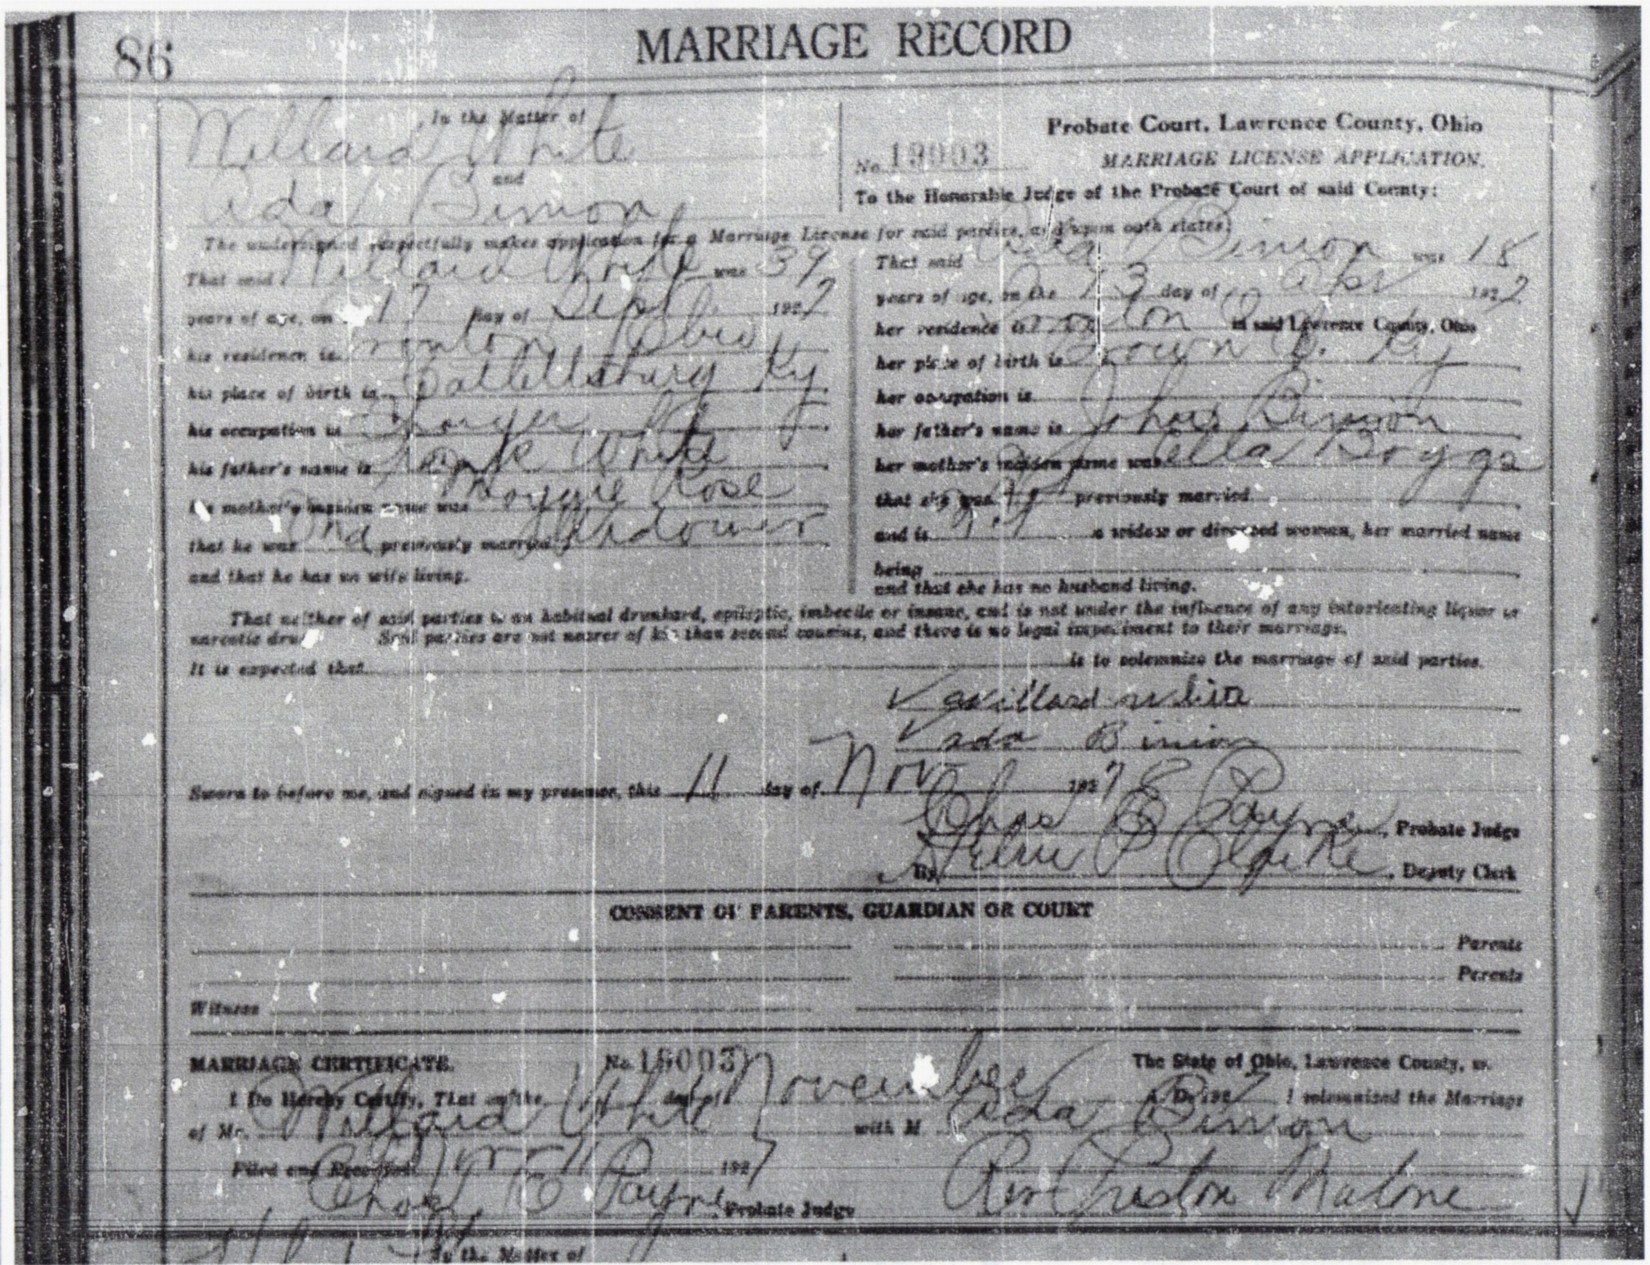 86
MARRIAGE RECORD
In the Matter of
Willard White
and
Ada Binion
Probate Court, Lawrence County, Ohio
No. 19003 MARRIAGE LICENSE APPLICATION.
To the Honorable Judge of the Probate Court of said County:
The undersigned respectfully makes application for a Marriage License for said parties, and upon oath states:
That said Willard White was 39
years of age, on 17 day of Sept 1927
his residence is Ironton Ohio
his place of birth is Catlettsburg Ky
his occupation is
his father's name is White
his mother's maiden name was Rose
that he was previously married Widower
and that he has no wife living.
That said Ada Binion was 18
years of age, on the day of Apr 1927
her residence is Ironton in said Lawrence County, Ohio
her place of birth is Ky
her occupation is
her father's name is Binion
her mother's maiden name was Ella Boggs
that she was Not previously married
and is Not a widow or divorced woman, her married name
being
and that she has no husband living.
That neither of said parties is an habitual drunkard, epileptic, imbecile or insane, and is not under the influence of any intoxicating liquor or
narcotic drug. Said parties are not nearer of kin than second cousins, and there is no legal impediment to their marriage.
It is expected that is to solemnize the marriage of said parties.
Willard White
ada Binion
Sworn to before me, and signed in my presence, this 11 day of Nov 1927
Chas E Payne, Probate Judge
By Clarke, Deputy Clerk
CONSENT OF PARENTS, GUARDIAN OR COURT
Parents
Parents
Witness
MARRIAGE CERTIFICATE. No. 19003 The State of Ohio, Lawrence County, ss.
I Do Hereby Certify, That on the 11 day of November A. D. 1927 I solemnized the Marriage
of Mr. Willard White with M Ada Binion
Filed and Recorded Nov 1927
Chas E Payne, Probate Judge
Rev Preston Malone
In the Matter of